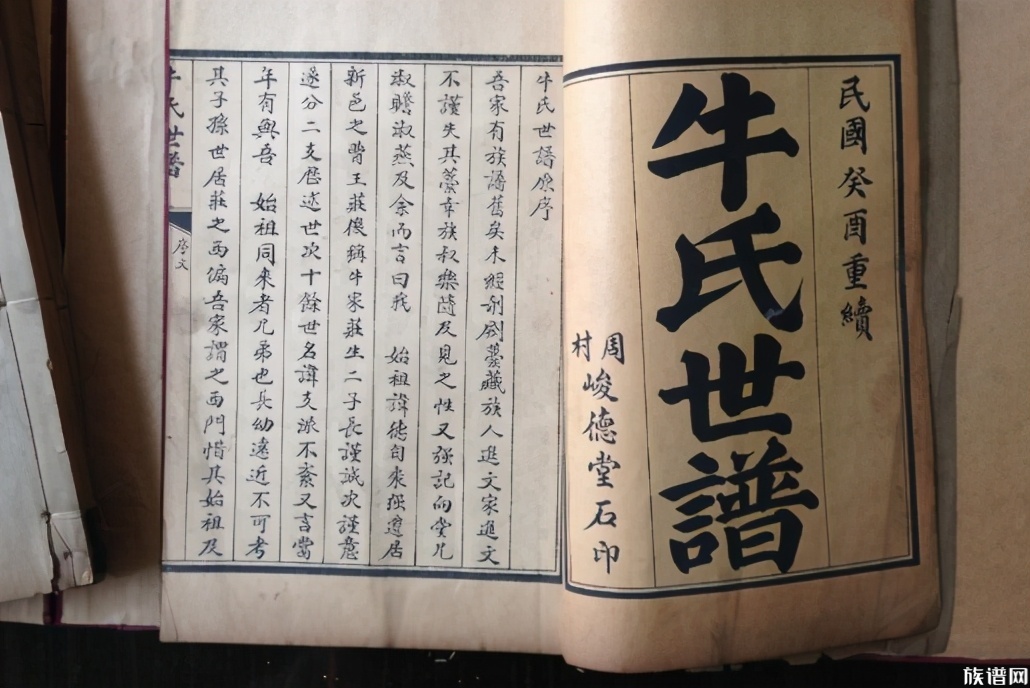 民國癸酉重續
牛氏世譜
周村峻德堂石印
牛氏世譜原序
吾家有族譜舊矣未經剞劂藁藏族人進文家進文
不謹失其藁幸族叔樂隨及見之性又强記向堂兄
淑瞻淑燕及余而言曰我 始祖諱德自來强遷居
新邑之背王莊俊稱牛家莊生二子長謹誠次謹意
遂分二支歷述世次十餘世名諱支派不紊又言當
年有與吾 始祖同來者兄弟也長幼遠近不可考
其子孫世居莊之西偏吾家謂之西門惜其始祖及
牛氏世譜
序文
族谱网